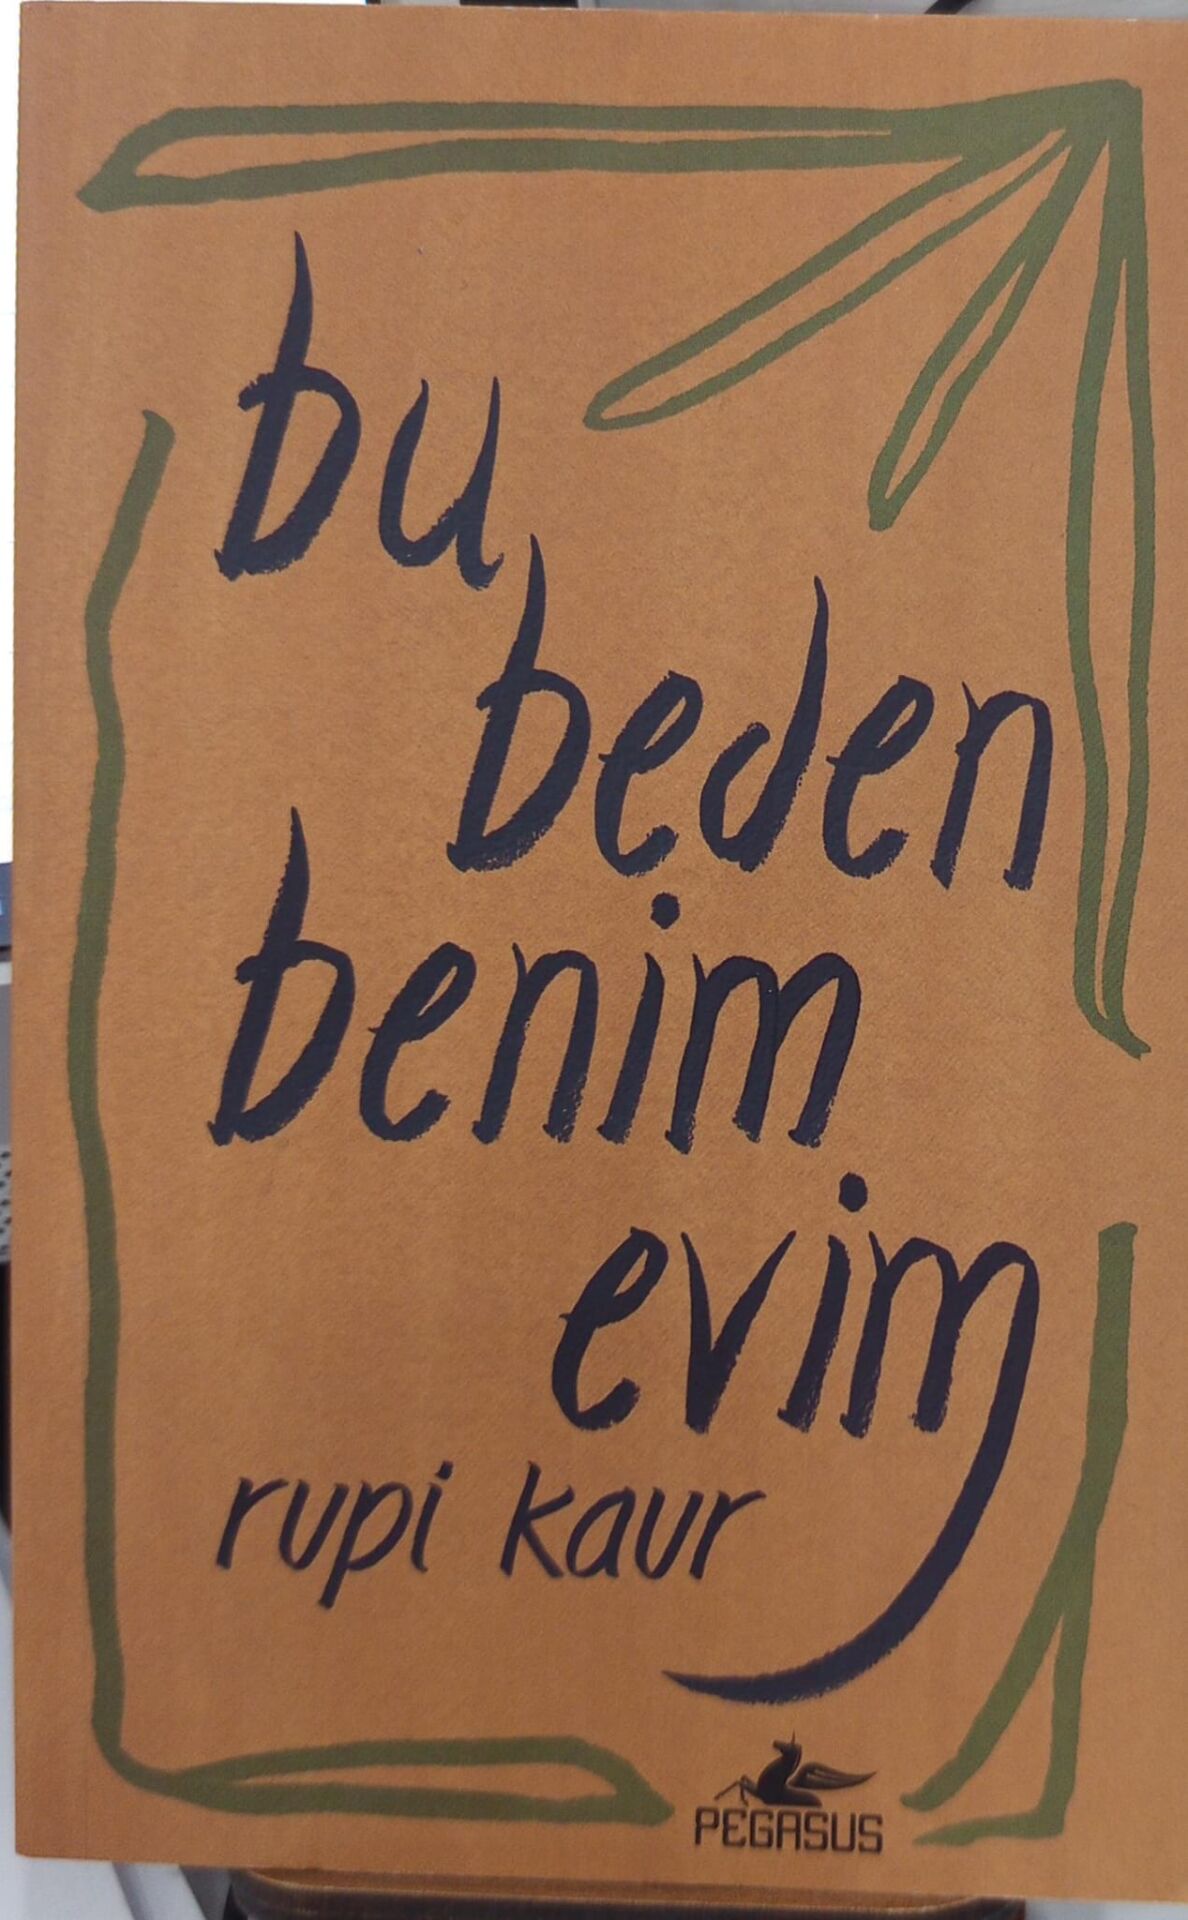 bu
beden
benim
evim
rupi kaur
PEGASUS